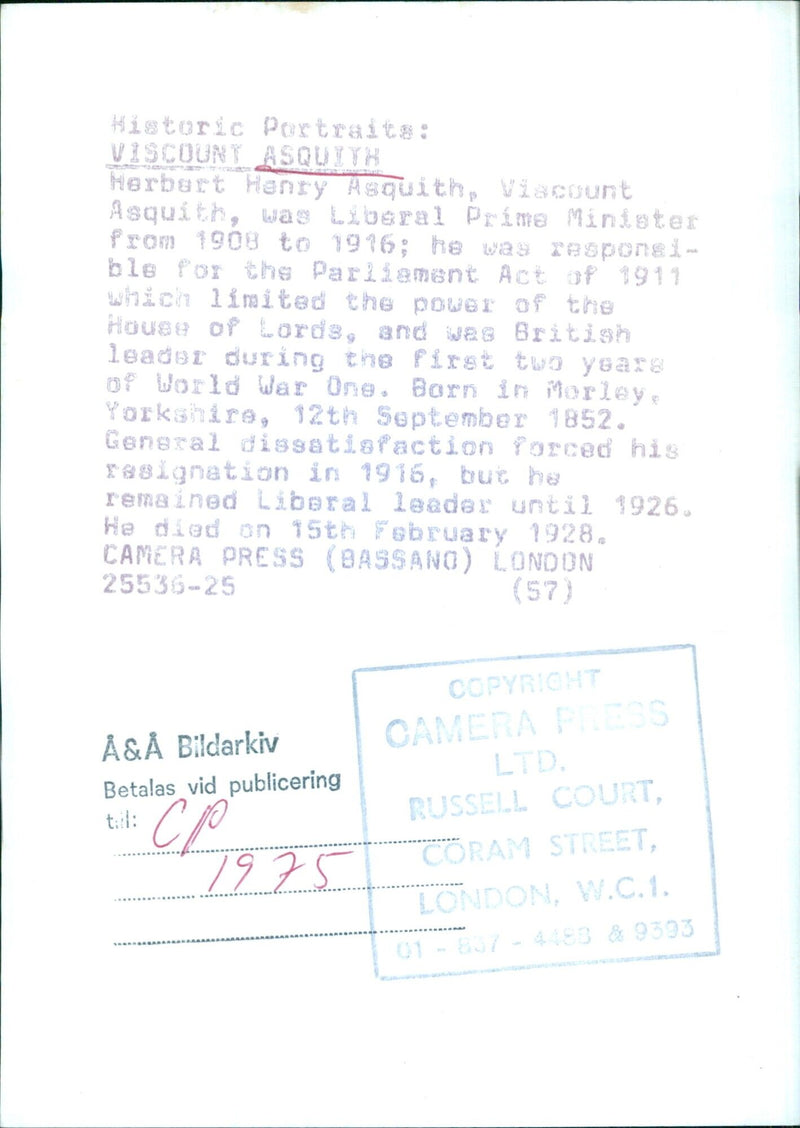 Historic Portraits:
VISCOUNT ASQUITH
Herbert Henry Asquith, Viscount
Asquith, was Liberal Prime Minister
from 1908 to 1916; he was responsi-
ble for the Parliament Act of 1911
which limited the power of the
House of Lords, and was British
leader during the first two years
of World War One. Born in Morley,
Yorkshire, 12th September 1852.
General dissatisfaction forced his
resignation in 1916, but he
remained Liberal leader until 1926.
He died on 15th February 1928.
CAMERA PRESS (BASSANO) LONDON
25536-25 (57)
Å&Å Bildarkiv
Betalas vid publicering
till: CP
1975
COPYRIGHT
CAMERA PRESS
LTD.
RUSSELL COURT,
CORAM STREET,
LONDON, W.C.1.
01 - 837 - 4488 & 9393